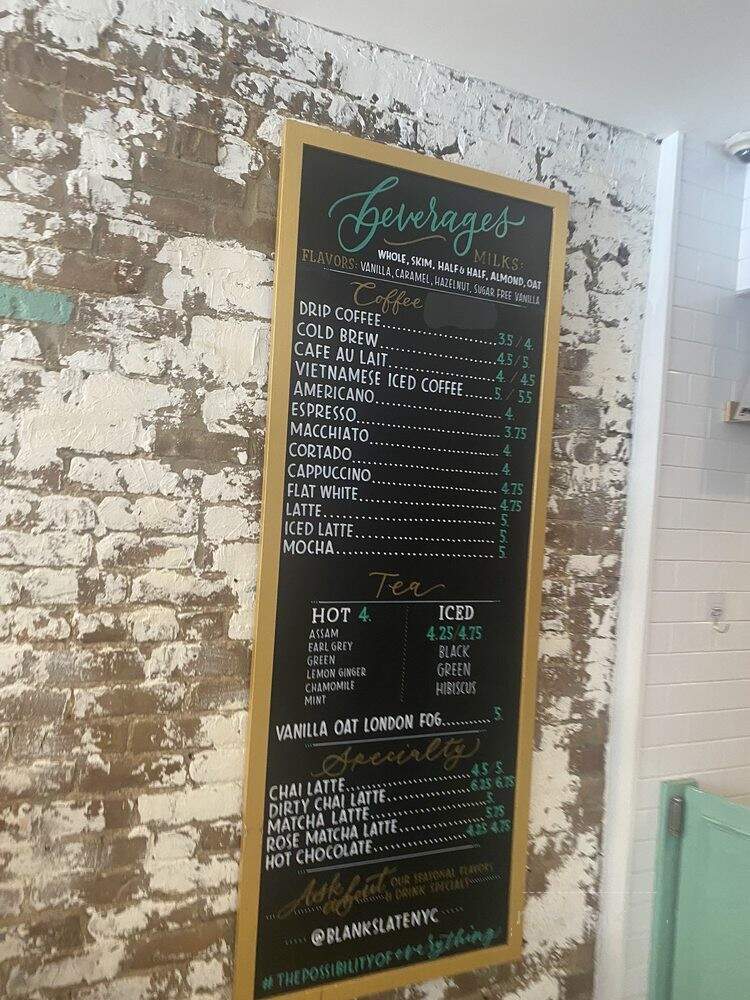 beverages
MILKS:
WHOLE, SKIM, HALF & HALF, ALMOND, OAT
FLAVORS: VANILLA, CARAMEL, HAZELNUT, SUGAR FREE VANILLA
Coffee
DRIP COFFEE 3.5 / 4.
COLD BREW 4.5 / 5.
CAFE AU LAIT 4. / 4.5
VIETNAMESE ICED COFFEE 5. / 5.5
AMERICANO 4.
ESPRESSO 3.75
MACCHIATO 4.
CORTADO 4.
CAPPUCCINO 4.75
FLAT WHITE 4.75
LATTE 5.
ICED LATTE 5.
MOCHA 5.
Tea
HOT 4.
ASSAM
EARL GREY
GREEN
LEMON GINGER
CHAMOMILE
MINT
ICED
4.25/4.75
BLACK
GREEN
HIBISCUS
VANILLA OAT LONDON FOG 5.
Specialty
CHAI LATTE 4.5 5.
DIRTY CHAI LATTE 6.25 6.75
MATCHA LATTE 5.
ROSE MATCHA LATTE 5.75
HOT CHOCOLATE 4.25 4.75
Ask about OUR SEASONAL FLAVORS
& DRINK SPECIALS
@BLANKSLATENYC
#THEPOSSIBILITYOFeverything